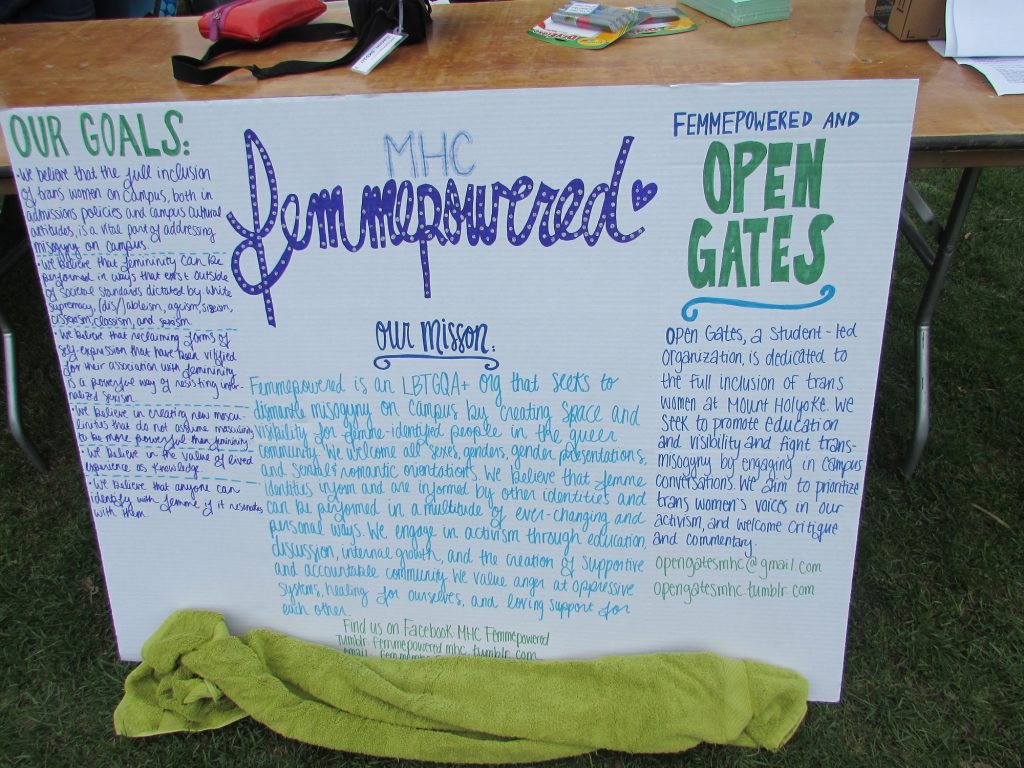 OUR GOALS:
• We believe that the full inclusion
of trans women on campus, both in
admissions policies and campus cultural
attitudes, is a vital part of addressing
misogyny on campus.
• We believe that femininity can be
performed in ways that exist outside
of societal standards dictated by white
supremacy, (dis)/ableism, ageism, sizeism,
cissexism, classism, and sexism.
• We believe that reclaiming forms of
self-expression that have been vilified
for their association with femininity
is a powerful way of resisting inter-
nalized sexism
• We believe in creating new mascu-
linities that do not assume masculinity
to be more powerful than femininity
• We believe in the value of lived
experience as knowledge
• We believe that anyone can
identify with femme if it resonates
with them
MHC
femmepowered
our misson:
Femmepowered is an LBTGQA+ org that seeks to
dismantle misogyny on campus by creating space and
visibility for femme-identified people in the queer
community. We welcome all sexes, genders, gender presentations,
and sexual/romantic orientations. We believe that femme
identities inform and are informed by other identities and
can be performed in a multitude of ever-changing and
personal ways. We engage in activism through education,
discussion, internal growth, and the creation of supportive
and accountable community. We value anger at oppressive
systems, healing for ourselves, and loving support for
each other.
Find us on Facebook MHC Femmepowered
Tumblr femmepowered mhc.tumblr.com
FEMMEPOWERED AND
OPEN
GATES
Open Gates, a student-led
organization, is dedicated to
the full inclusion of trans
women at Mount Holyoke. We
seek to promote education
and visibility and fight trans-
misogyny by engaging in campus
conversations. We aim to prioritize
trans women's voices in our
activism, and welcome critique
and commentary.
opengatesmhc@gmail.com
opengatesmhc.tumblr.com